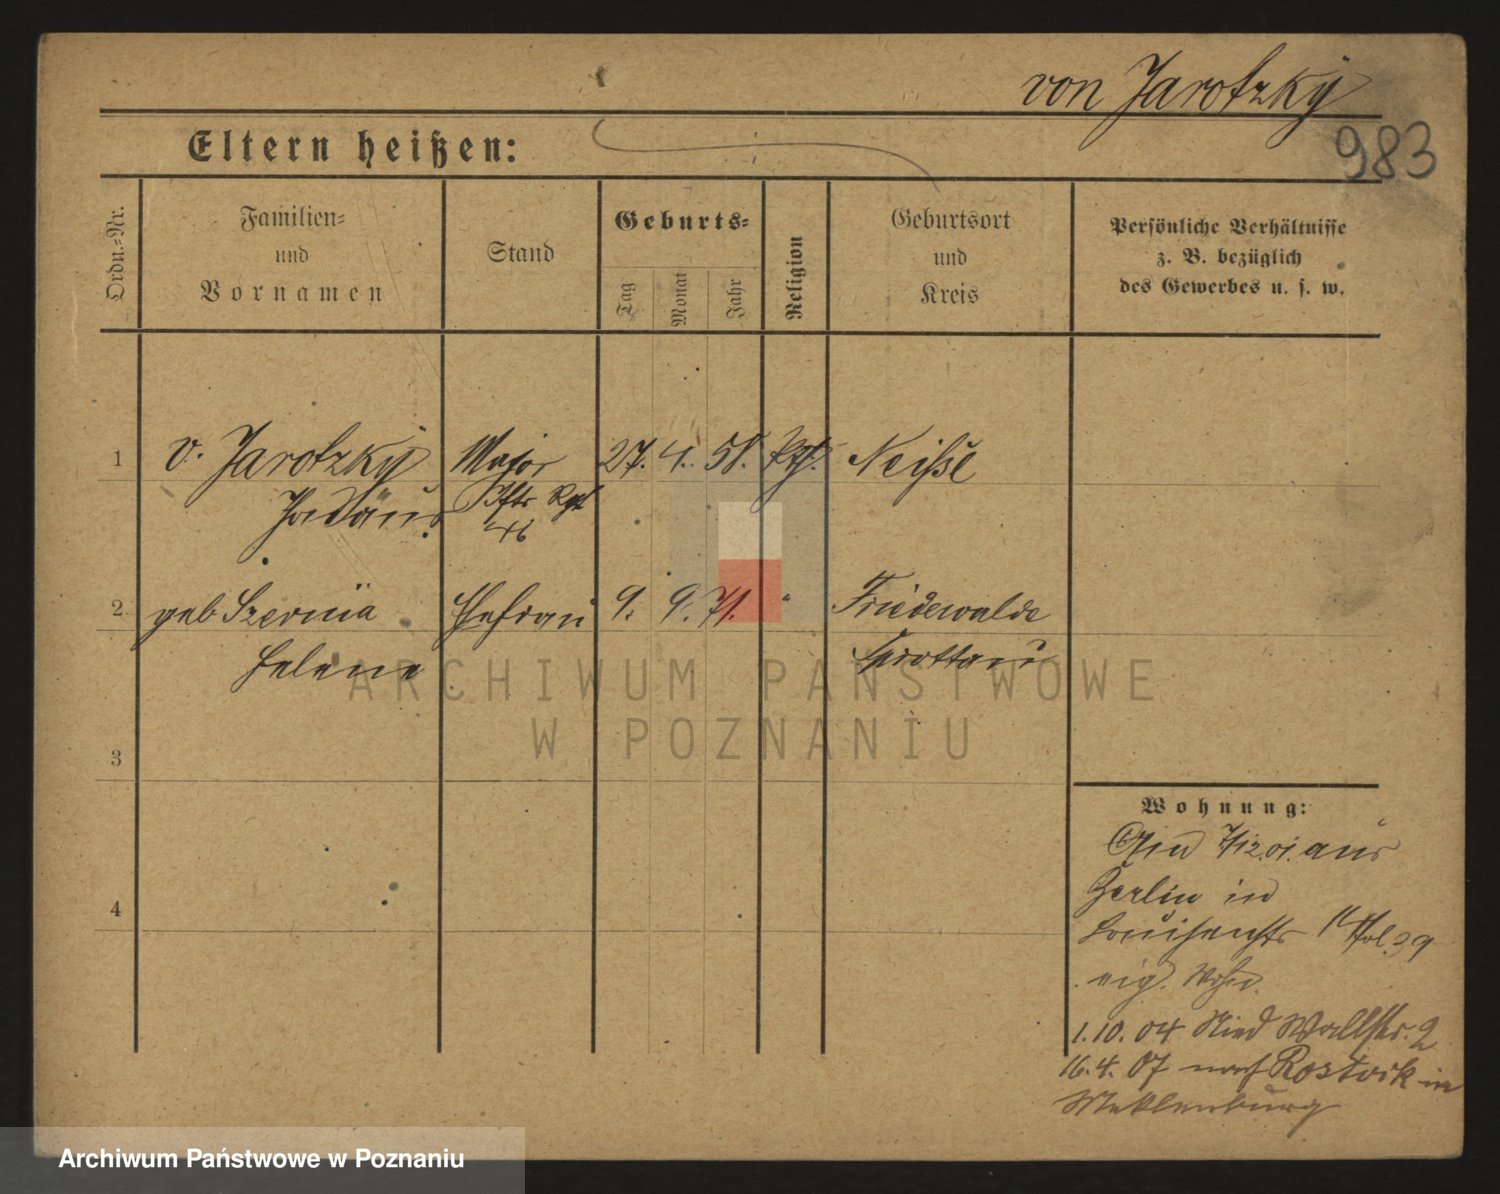 von Jarotzky
983
Eltern heißen:
Ordn.=Nr.
Familien=
und
Vornamen
Stand
Geburts=
Tag
Monat
Jahr
Religion
Geburtsort
und
Kreis
Persönliche Verhältnisse
z. B. bezüglich
des Gewerbes u. s. w.
1
v. Jarotzky
Major
27. 4. 58.
Neiße
Thadäus
Inftr Rgt
46
2
geb Szernia
Ehefrau
9. 9. 71. "
Friedewalde
Helene
Sprottau
ARCHIWUM PAŃSTWOWE
W POZNANIU
3
Wohnung:
7/12.01. aus
Berlin in
Louisenstr
eig. Wohn.
4
1.10.04 Nied Wallstr. 2
16.4.07 nach Rostock in
Meklenburg
Archiwum Państwowe w Poznaniu